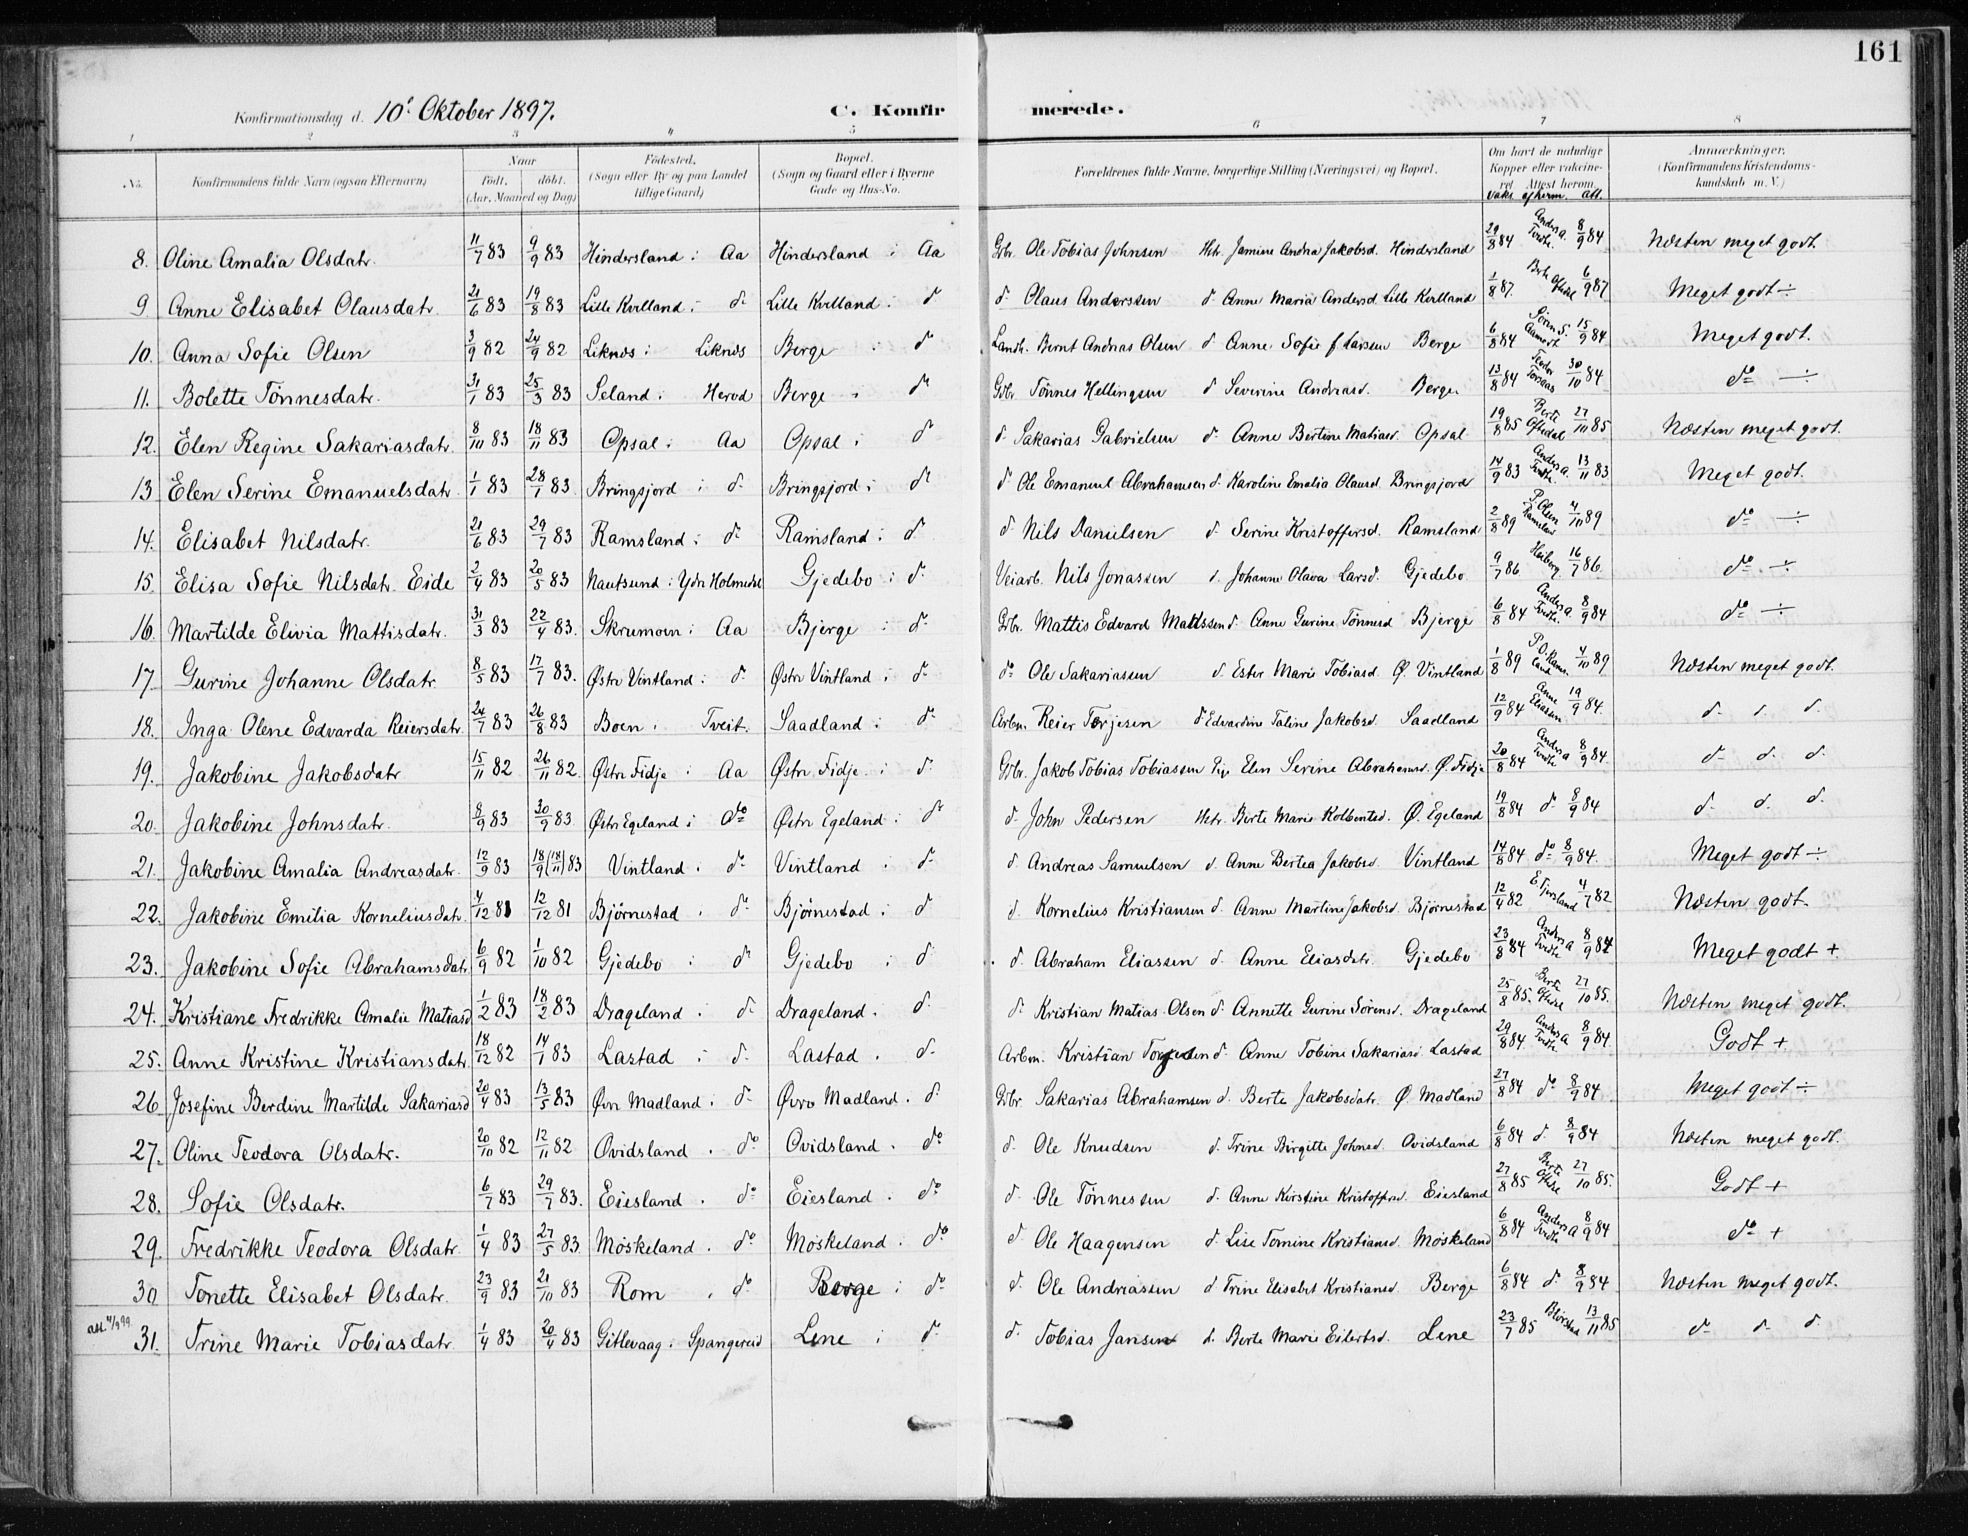 161
Konfirmationsdag d. 10' Oktober 1897. C. Konfirmerede.
1 2 3 4 5 6 7 8
No. Konfirmandens fulde Navn (ogsaa Efternavn) Naar født. døbt. (Aar, Maaned og Dag) Fødested. (Sogn eller By og paa Landet tillige Gaard) Bopæl. (Sogn og Gaard eller i Byerne Gade og Hus-No. Forældrenes fulde Navne, borgerlige Stilling (Næringsvei) og Bopæl. Om havt de naturlige Kopper eller vaccineret. Attest herom. vaks. af hvem. att. Anmærkninger. (Konfirmandens Kristendomskundskab m. V.)
8. Oline Amalia Olsdatr. 11/7 83 9/9 83 Hindersland i Aa Hindersland i Aa Gbr. Ole Tobias Johnsen Hstr. Jamine Andrea Jakobsd. Hindersland 29/8 84 Anders A. Tvedte 8/9 84 Næsten meget godt
9 Anne Elisabet Olausdatr. 21/6 83 19/8 83 Lille Kvilland i do Lille Kvilland i do do Olaus Anderssen do Anne Maria Andersd. Lille Kvilland 1/8 87. 6/9 87 Meget godt ÷
10. Anna Sofie Olsen 3/9 82 24/9 82 Liknes i Liknes Berge i do Landh. Bernt Andreas Olsen do Anne Sofie f. Larsen Berge 6/8 84 Sören S. 15/9 84 Meget godt.
11. Bolette Tönnesdatr. 31/1 83 25/3 83 Seland i Herod Berge i do Gbr. Tønnes Hellingsen do Severine Andreasd. Berge 13/8 84 30/10 84 do ÷
12. Elen Regine Sakariasdatr. 8/10 83 18/11 83 Opsal i Aa Opsal i do do Sakarias Gabrielsen do Anne Bertine Matiasd. Opsal 19/8 85 Berte 27/10 85 Næsten meget godt.
13 Elen Serine Emanuelsdatr. 1/1 83 28/1 83 Bringsjord i do Bringsjord i do do Ole Emanuel Abrahamsen do Karoline Emalia Olausd. Bringsjord 14/9 83 Anders A. Tvedte 13/11 83 Meget godt.
14. Elisabet Nilsdatr. 21/6 83 29/7 83 Ramsland i do Ramsland i do do Nils Danielsen do Serine Kristoffersd. Ramsland 2/8 89 P. Olsen Ramsland 4/10 89 do ÷
15. Elisa Sofie Nilsdatr. Eide 2/4 83 20/5 83 Nautsund i Ydre Holmedal Gjedebo i do Veiarb. Nils Jonassen do Johanne Olava Larsd. Gjedebo 9/7 86 Heiberg 16/7 86 do ÷
16. Martilde Elivia Mattisdatr. 31/3 83 22/4 83. Skrumoen i Aa Bjerge i do Gbr. Mattis Edvard Mattissen do Anne Gurine Tønnesd Bjerge 6/8 84 Anders A. Tvedte 8/9 84 do ÷
17. Gurine Johanne Olsdatr. 8/5 83 17/7 83. Østre Vintland i do Østre Vintland i do do Ole Sakariassen do Ester Marie Tobiasd. Ø. Vintland 1/8 89 P.O. Ramsland 4/10 89 Næsten meget godt.
18. Inga Olene Edvarda Reiersdatr. 24/7 83 26/8 83 Boen i Tveit. Saadland i do Arbm. Reier Torjesen do Edvardine Taline Jakobsd. Saadland 12/9 84 Anne Eliassen 19/9 84. do do do
19. Jakobine Jakobsdatr 15/11 82 26/11 82. Østre Fidje i Aa Østre Fidje i do Gbr. Jakob Tobias Tobiassen Pige Elen Serine Abrahamsd. Ø. Fidje 20/8 84 Anders A Tvedte 8/9 84. do do do
20. Jakobine Johnsdatr. 8/9 83 30/9 83. Østre Egeland i do Østre Egeland i do do John Pedersen Hstr. Berte Marie Kolbentsd. Ø. Egeland 19/8 84 do 8/9 84 do do do
21. Jakobine Amalia Andreasdatr. 12/9 83 18/9 (18/11) 83 Vintland i do Vintland i do do Andreas Samuelsen do Anne Bertea Jakobsd. Vintland 14/8 84 do 8/9 84. Meget godt ÷
22. Jakobine Emilia Korneliusdatr. 4/12 81 12/12 81 Bjørnestad i do Bjørnestad i do do Kornelius Kristiansen do Anne Martine Jakobsd. Bjørnestad 12/4 82 4/7 82 Næsten godt.
23. Jakobine Sofie Abrahamsdatr. 6/9 82 1/10 82 Gjedebo i do Gjedebo i do do Abraham Eliassen do Anne Eliasdatr. Gjedebo 23/8 84 Anders A Tvedte 8/9 84 Meget godt +
24. Kristiane Fredrikke Amalie Matiasd 1/2 83 18/2 83 Drageland i do Drageland. do do Kristian Matias Olsen do Annette Gurine Sörensd. Drageland 25/8 85. Berte 27/10 85. Næsten meget godt.
25. Anne Kristine Kristiansdatr. 18/12 82 14/1 83 Lastad i do Lastad . do Arbm. Kristian Torjesen do Anne Tobine Sakariasd. Lastad 29/8 84. Anders A Tvedte 8/9 84. Godt +
26 Josefine Berdine Martilde Sakariasd 20/4 83 13/5 83 Øvre Madland i do Øvre Madland . do Gbr Sakarias Abrahamsen do Berte Jakobsdatr. Ø. Madland 27/8 84 do 8/9 84. Meget godt ÷
27. Oline Teodora Olsdatr. 20/10 82 12/11 82 Ovidsland . do Ovidsland . do do Ole Knudsen do Trine Birgitte Johnsd. Ovidsland 6/8 84 do 8/9 84 Næsten meget godt.
28. Sofie Olsdatr. 6/7 83 29/7 83. Eiesland . do Eiesland . do do Ole Tønnessen do Anne Kirstine Kristoffersd. Eiesland 27/8 85 Berte 27/10 85. Godt +
29. Fredrikke Teodora Olsdatr. 1/4 83 27/5 83. Møskeland . do Møskeland . do do Ole Haagensen do Lise Tomine Kristiansd. Møskeland 6/8 84 Anders A Tvedte 8/9 84 do +
30 Tonette Elisabet Olsdatr. 23/9 83 21/10 83 Rom . do Berge i do do Ole Andreassen do Trine Elisabet Kristiansd. Berge 6/8 84 do 8/9 84 Næsten meget godt.
31. Trine Marie Tobiasdatr. 1/4 83 20/4 83 Gitlevaag i Spangereid Lene i do do Tobias Jansen do Berte Marie Eilertsd. Lene 23/7 85 13/11 85 do do do